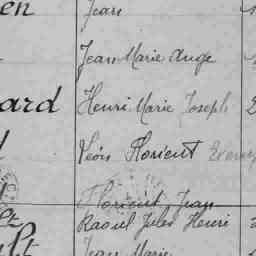 en Jean
Jean Marie Ange
ard Henri Marie Joseph
Léon Florient
Florient, Jean
Raoul Jules Henri
Jean Marie